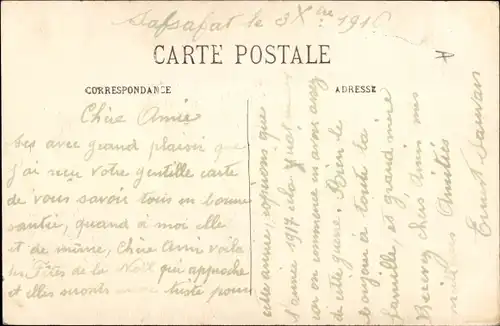 Safsafat le 3 Xbre 1916
CARTE POSTALE
CORRESPONDANCE
ADRESSE
Chère Amie
avec grand plaisir que
j'ai reçu votre gentille carte
de vous savoir tous en bonne
santée, quand à moi elle
et de même, Chère Amie voila
les Fêtes de la Noël qui approche
et elles seronts triste pour
cette année, espérons que
l'année 1917 sera
car on commence en avoir assez
de cette guerre. Bien le
bonjour à toute la
famille, et grand mère
Recevez chers Amis mes
Amitiés
Ernest